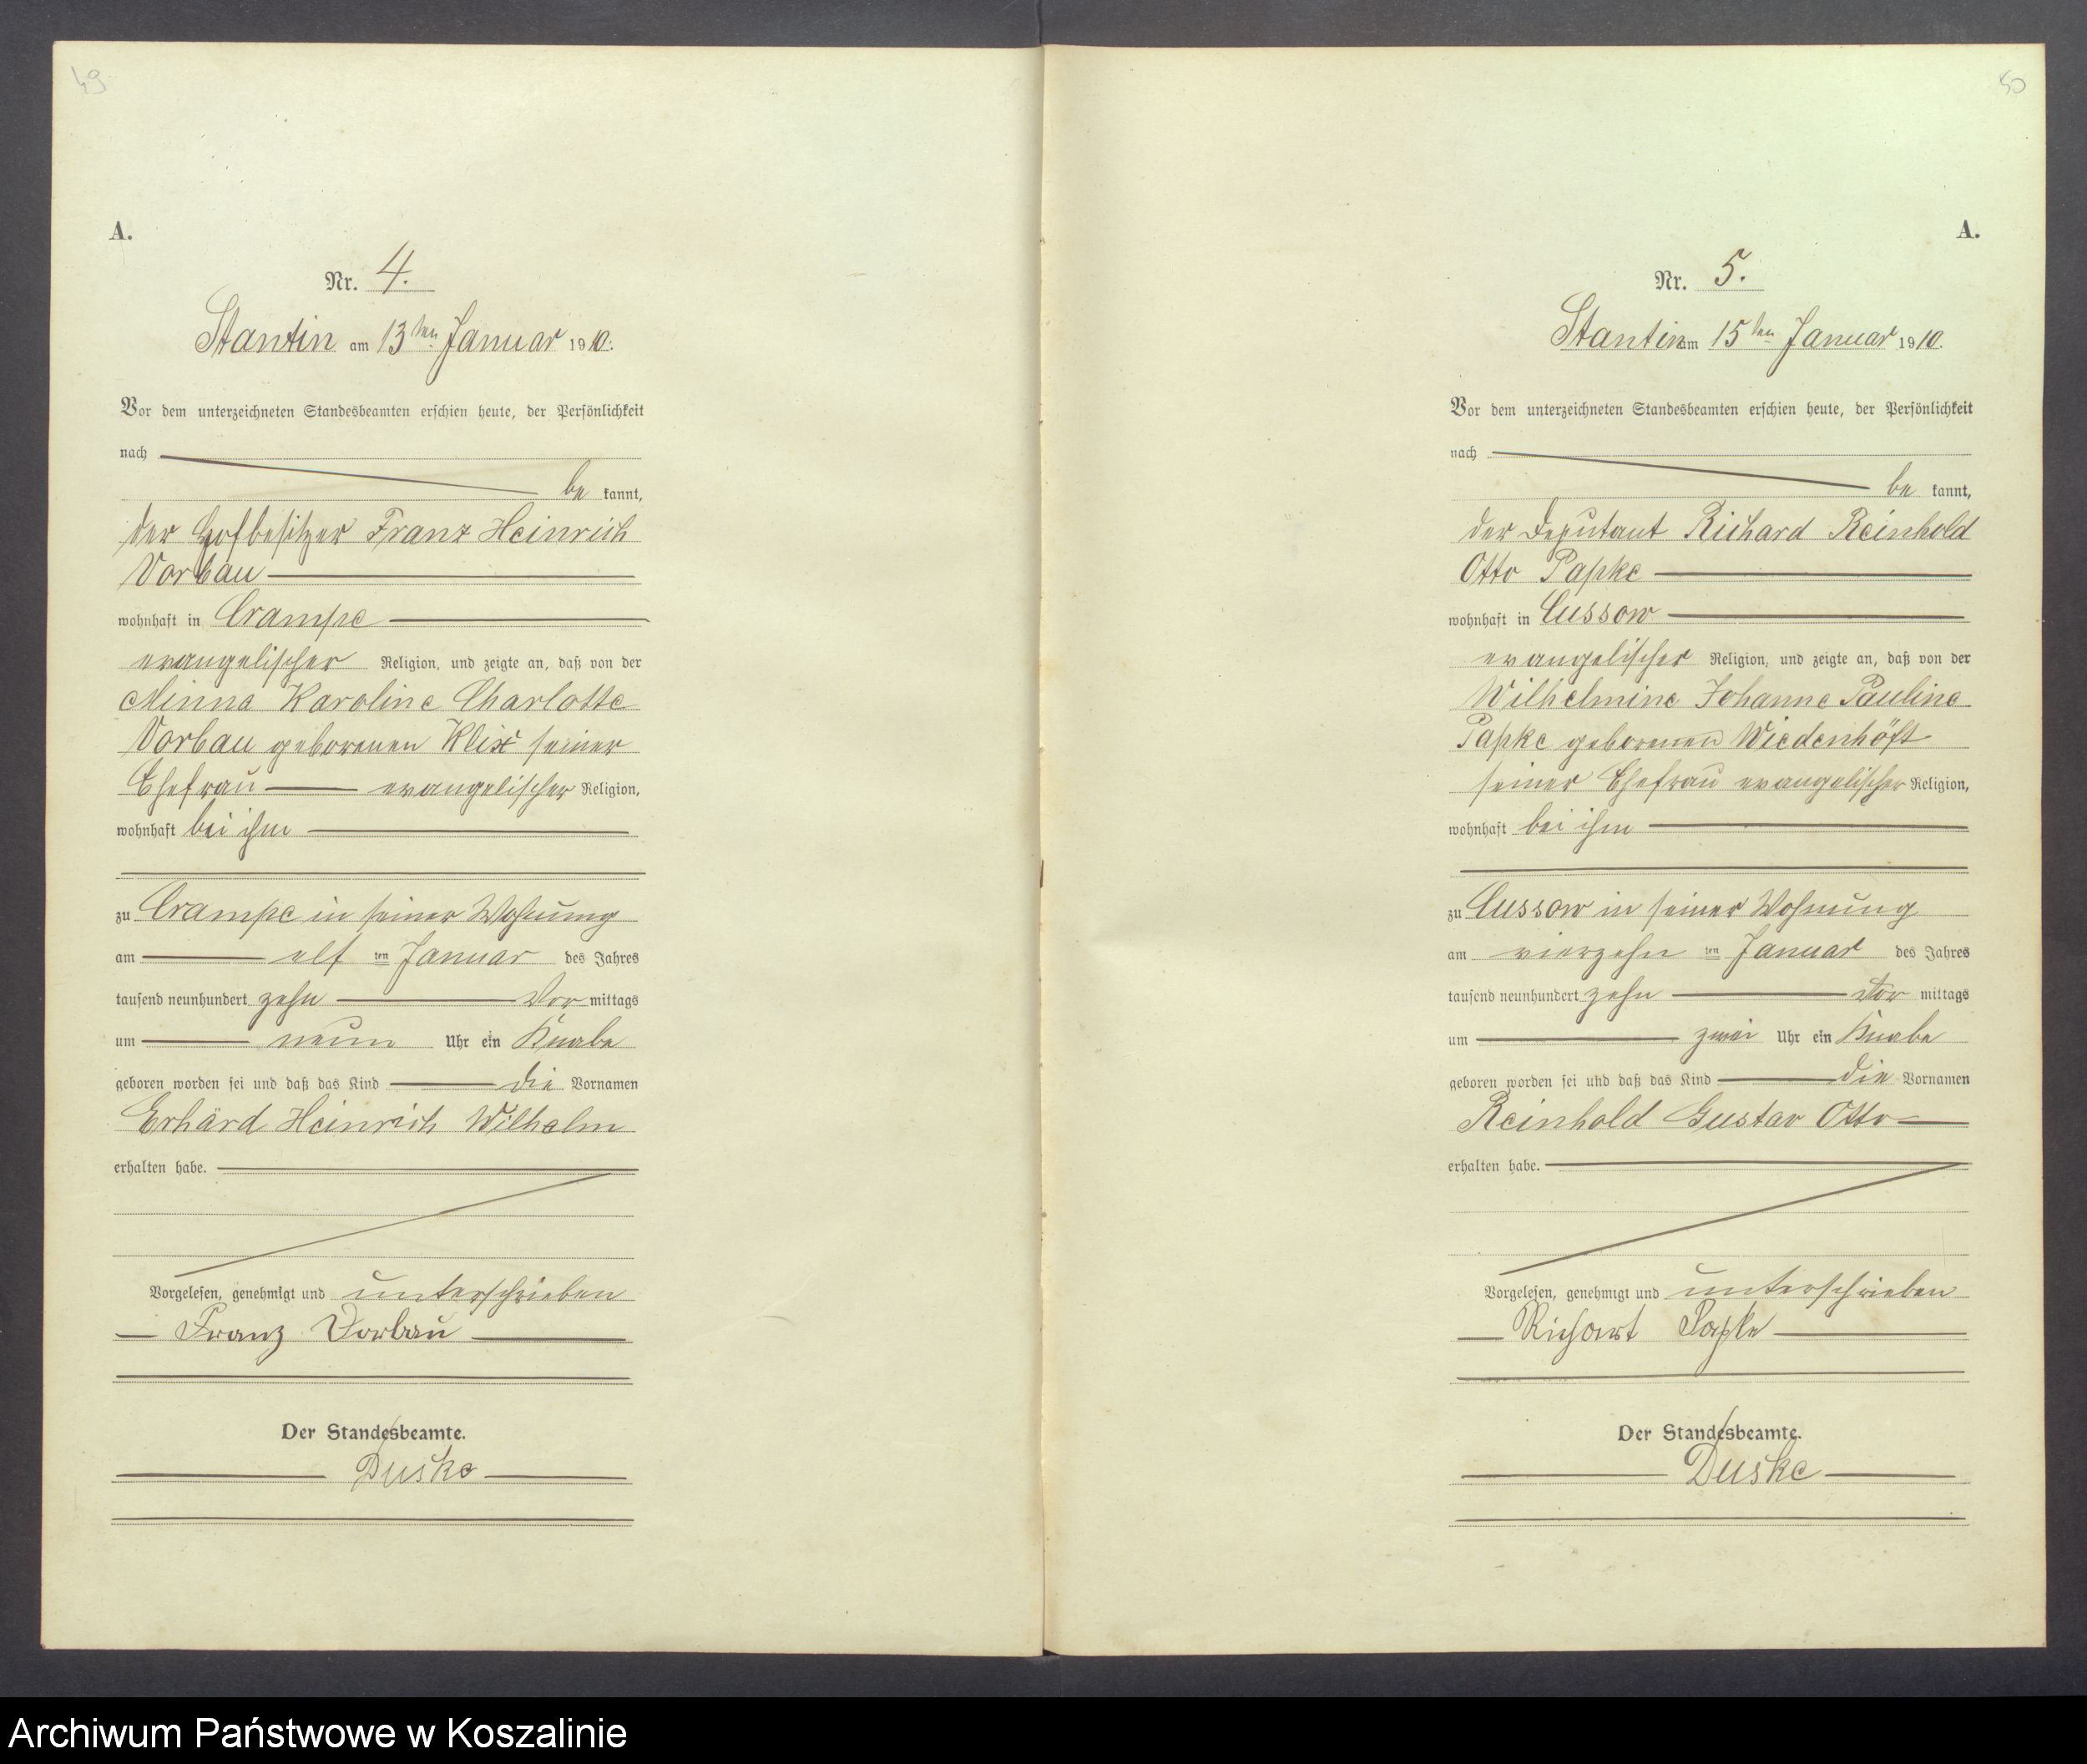 49
A.
Nr. 4.
Stantin am 13ten Januar 1910.
Vor dem unterzeichneten Standesbeamten erschien heute, der Persönlichkeit
nach
be kannt,
der Hofbesitzer Franz Heinrich
Vorbau
wohnhaft in Crampe
evangelischer Religion, und zeigte an, daß von der
Minna Karoline Charlotte
Vorbau geborenen Klix seiner
Ehefrau evangelischer Religion,
wohnhaft bei ihm
zu Crampe in seiner Wohnung
am elf ten Januar des Jahres
tausend neunhundert zehn Vor mittags
um neun Uhr ein Knabe
geboren worden sei und daß das Kind die Vornamen
Erhard Heinrich Wilhelm
erhalten habe.
Vorgelesen, genehmigt und unterschrieben
Franz Vorbau
Der Standesbeamte.
Duske
50
A.
Nr. 5.
Stantin am 15ten Januar 1910.
Vor dem unterzeichneten Standesbeamten erschien heute, der Persönlichkeit
nach
be kannt,
der Deputant Richard Reinhold
Otto Papke
wohnhaft in Cussow
evangelischer Religion, und zeigte an, daß von der
Wilhelmine Johanne Pauline
Papke geborenen Wiedenhöft
seiner Ehefrau evangelischer Religion,
wohnhaft bei ihm
zu Cussow in seiner Wohnung
am vierzehn ten Januar des Jahres
tausend neunhundert zehn Vor mittags
um zwei Uhr ein Knabe
geboren worden sei und daß das Kind die Vornamen
Reinhold Gustav Otto
erhalten habe.
Vorgelesen, genehmigt und unterschrieben
Richart Papke
Der Standesbeamte.
Duske
Archiwum Państwowe w Koszalinie